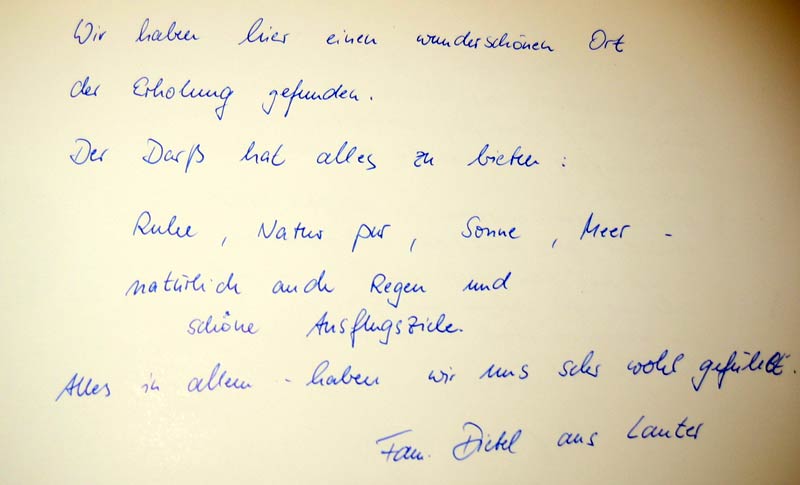 Wir haben hier einen wunderschönen Ort
der Erholung gefunden.
Der Darß hat alles zu bieten :
Ruhe , Natur pur , Sonne , Meer -
natürlich auch Regen und
schöne Ausflugsziele.
Alles in allem - haben wir uns sehr wohl gefühlt.
Fam. Dietel aus Lauter